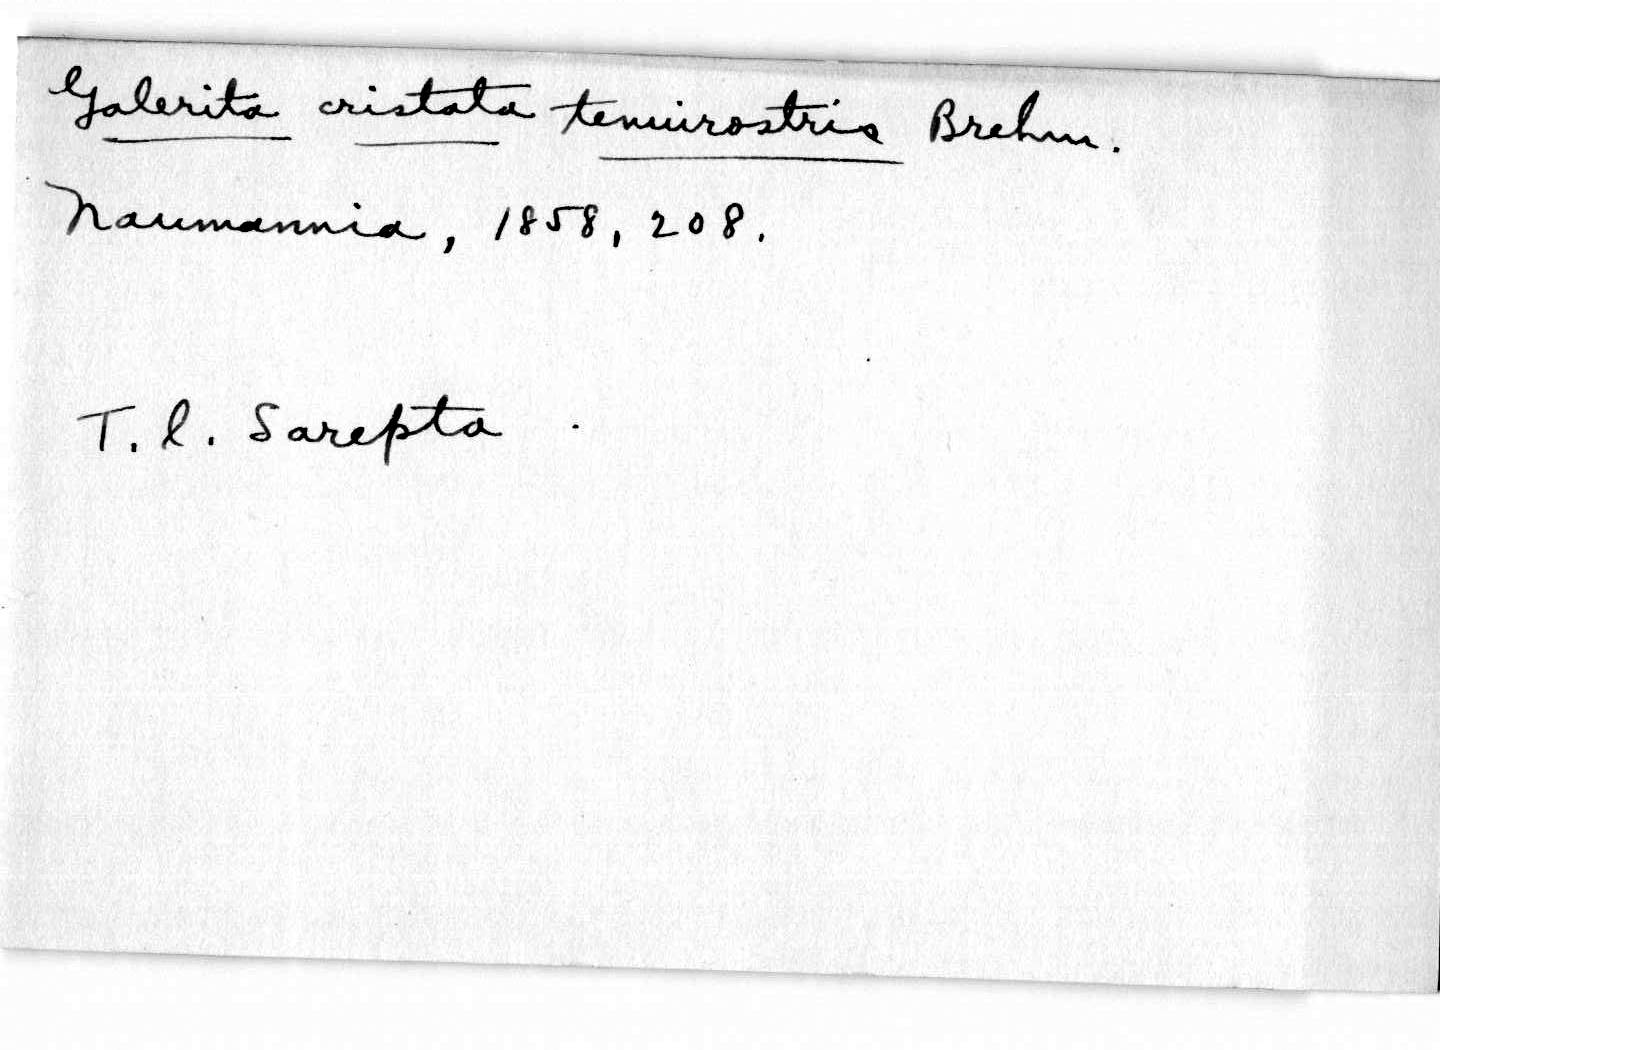 Galerita cristata tenuirostris Brehm.
Naumannia, 1858, 208.
T. l. Sarepta